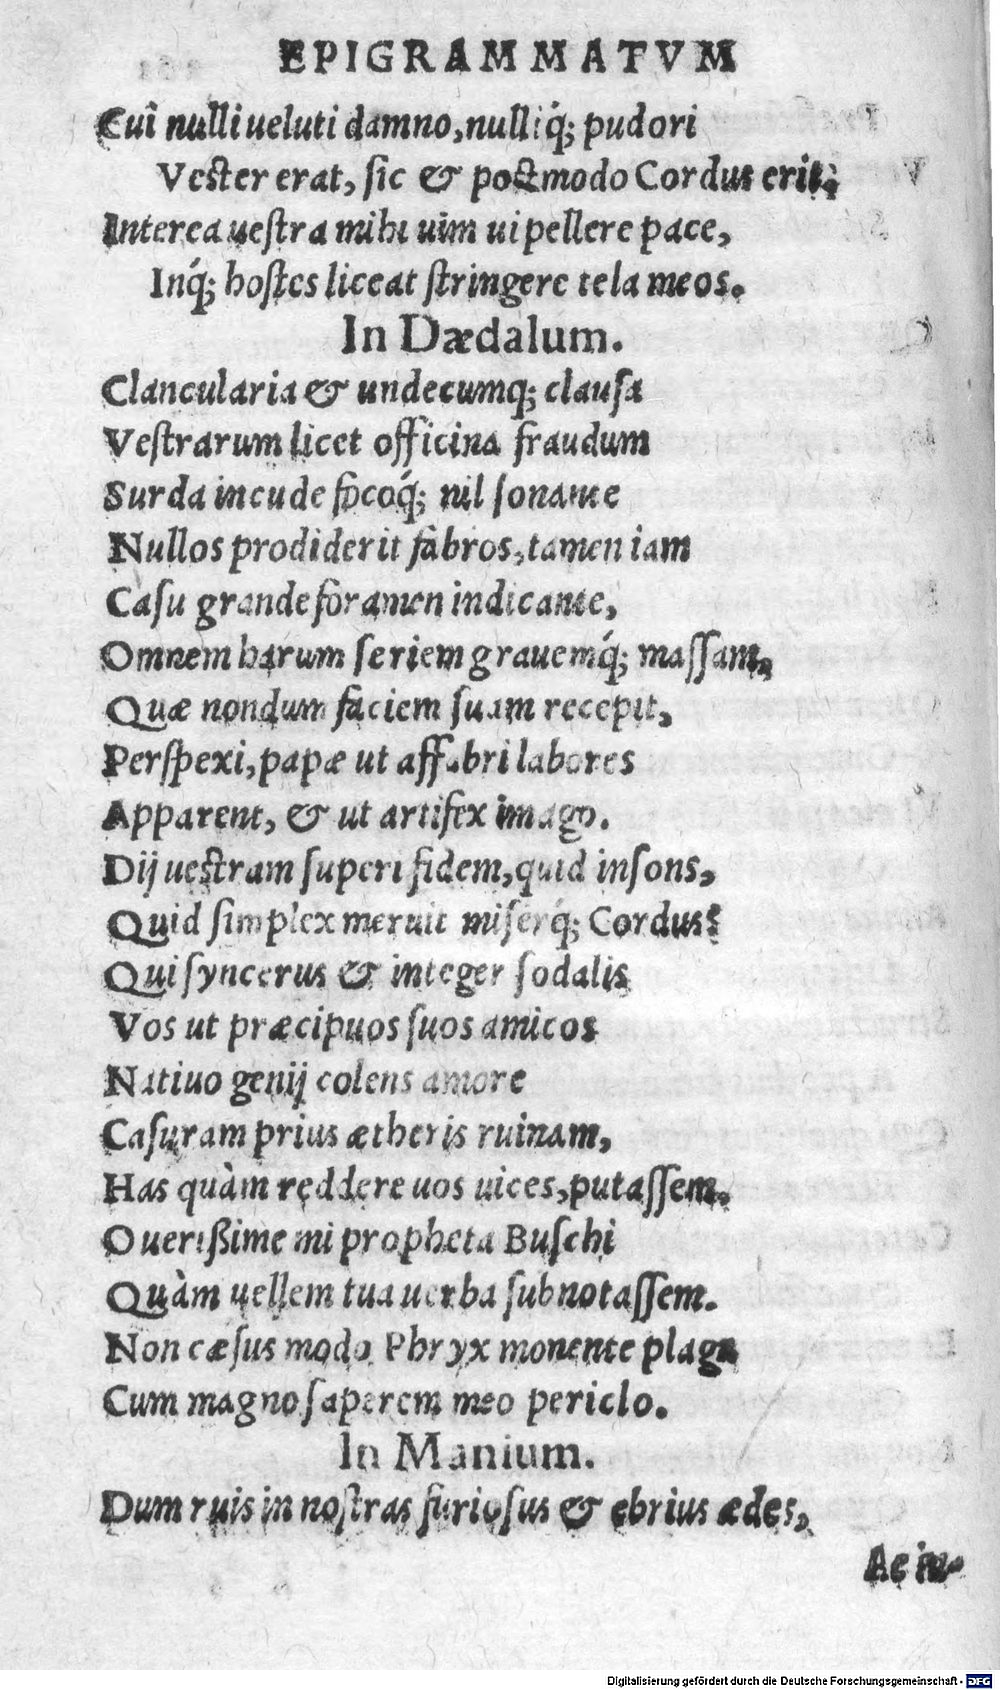 EPIGRAMMATVM
Cui nulli ueluti damno, nulliq́; pudori
Vester erat, sic & postmodo Cordus erit,
Interea uestra mihi uim ui pellere pace,
Inq́; hostes liceat stringere tela meos.
In Dædalum.
Clancularia & undecumq; clausa
Vestrarum licet officina fraudum
Surda incude focoq́; nil sonante
Nullos prodiderit fabros, tamen iam
Casu grande foramen indicante,
Omnem harum seriem grauemq́; massam,
Quæ nondum faciem suam recepit,
Perspexi, papæ ut affabri labores
Apparent, & ut artifex imago.
Dij uestram superi fidem, quid insons,
Quid simplex meruit miserq́; Cordus?
Qui syncerus & integer sodalis
Vos ut præcipuos suos amicos
Natiuo genij colens amore
Casuram prius ætheris ruinam,
Has quàm reddere uos uices, putassem.
O uerißime mi propheta Buschi
Quàm uellem tua uerba subnotassem.
Non cæsus modo Phryx monente plaga
Cum magno saperem meo periclo.
In Manium.
Dum ruis in nostras furiosus & ebrius ædes,
Ac in-
Digitalisierung gefördert durch die Deutsche Forschungsgemeinschaft - DFG